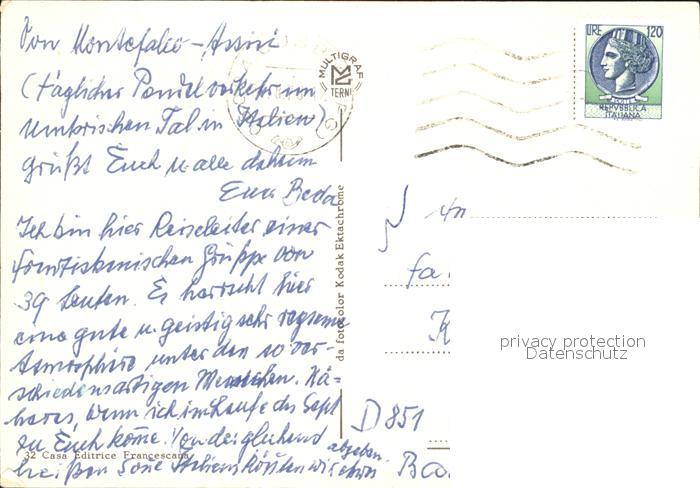 Von Montefalco-Assisi
(täglicher Pendelverkehr im
Umbrischen Tal in Italien)
grüßt Euch u. alle daheim
Euer Beda
Ich bin hier Reiseleiter einer
franziskanischen Gruppe von
39 Leuten. Es herrscht hier
eine gute u. geistig sehr regsame
Atmosphäre unter den so ver-
schiedensartigen Menschen. Nä-
heres, wenn ich im Laufe des Sept
zu Euch komme. Von der glühend
heißen Sonne Italiens könnten wir etwas
abgeben.
32 Casa Editrice Francescana
da fotocolor Kodak Ektachrome
MULTIGRAF
TERNI
LIRE 120
POSTE
REPVBBLICA
ITALIANA
An
Fa.
K
D 851
Ba
privacy protection
Datenschutz